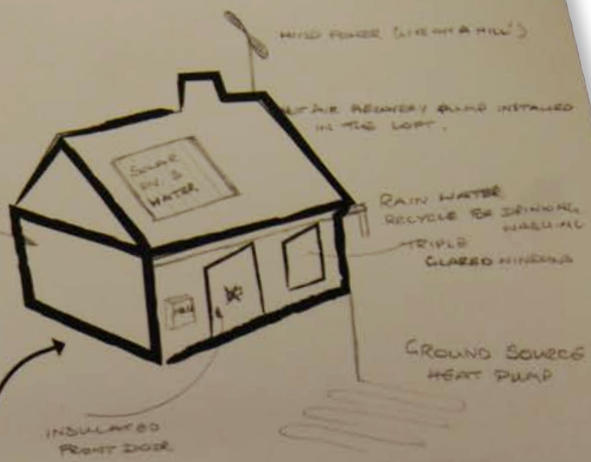 WIND POWER (LIVE ON A HILL!)
AIR RECOVERY PUMP INSTALLED
IN THE LOFT.
SOLAR
P.V. &
WATER
RAIN WATER
RECYCLE FOR DRINKING
WASHING
TRIPLE
GLAZED WINDOWS
GROUND SOURCE
HEAT PUMP
INSULATED
FRONT DOOR